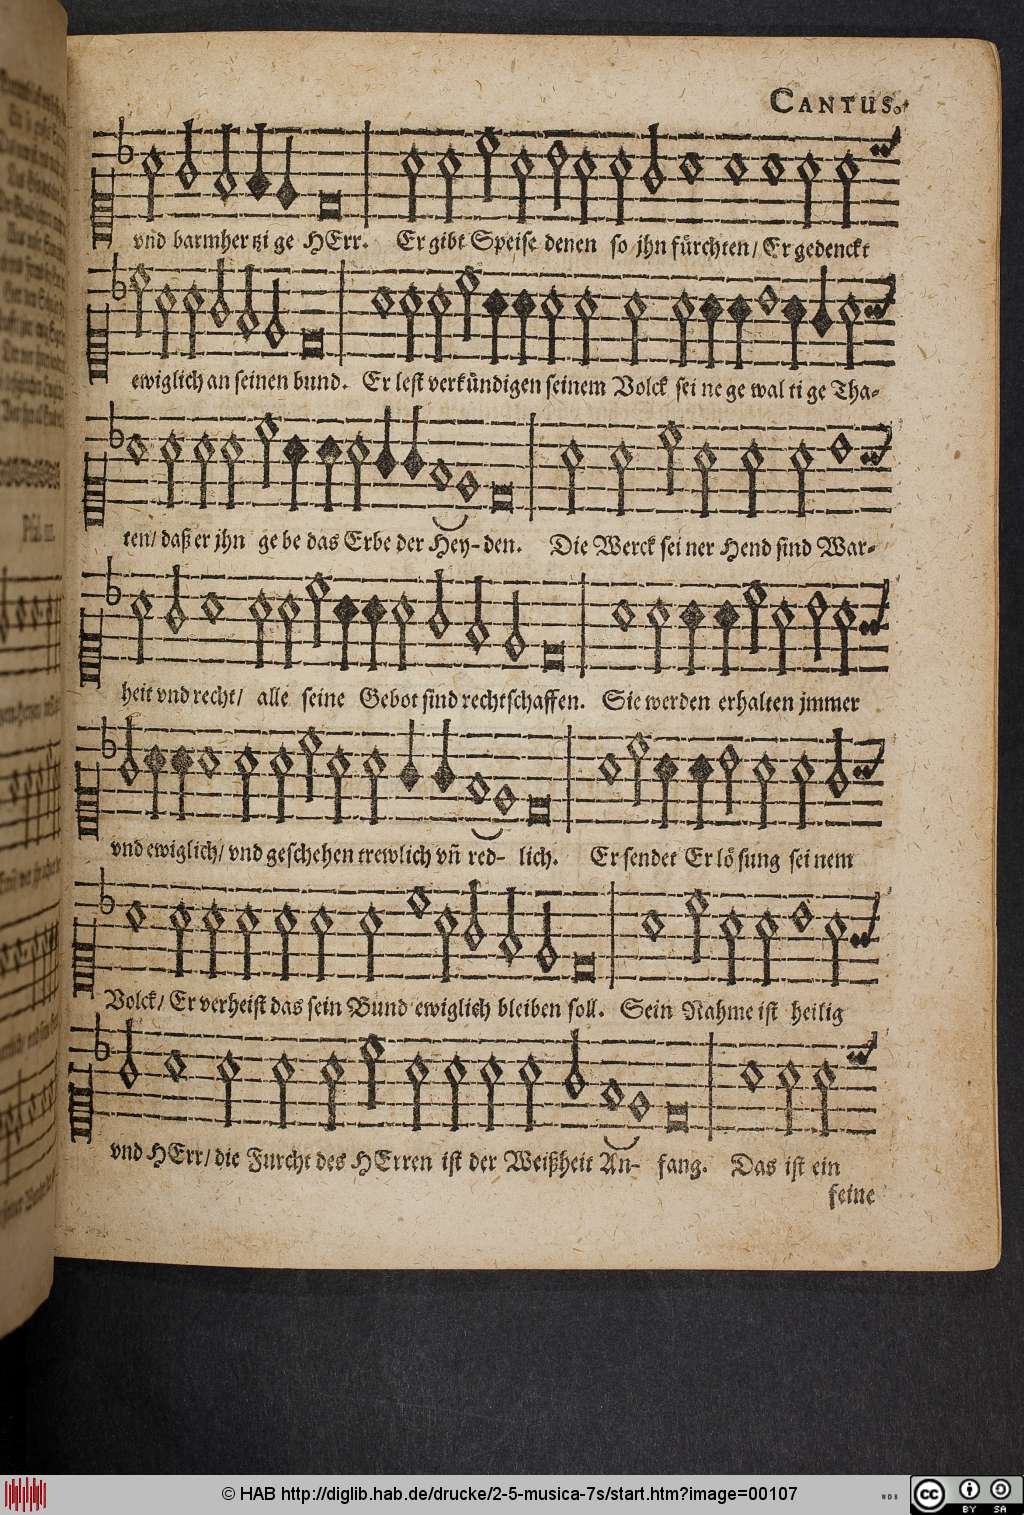 CANTUS.
vnd barmhertzi ge HErr. Er gibt Speise denen so jhn fürchten/ Er gedenckt
ewiglich an seinen bund. Er lest verkündigen seinem Volck sei ne ge wal ti ge Tha-
ten/ daß er jhn ge be das Erbe der Hey-den. Die Werck sei ner Hend sind War-
heit vnd recht/ alle seine Gebot sind rechtschaffen. Sie werden erhalten jmmer
vnd ewiglich/ vnd geschehen trewlich vñ red- lich. Er sendet Erlö sung sei nem
Volck/ Er verheist das sein Bund ewiglich bleiben soll. Sein Nahme ist heilig
vnd HErr/ die Furcht des HErren ist der Weißheit An- fang. Das ist ein
seine
© HAB http://diglib.hab.de/drucke/2-5-musica-7s/start.htm?image=00107
cc BY SA